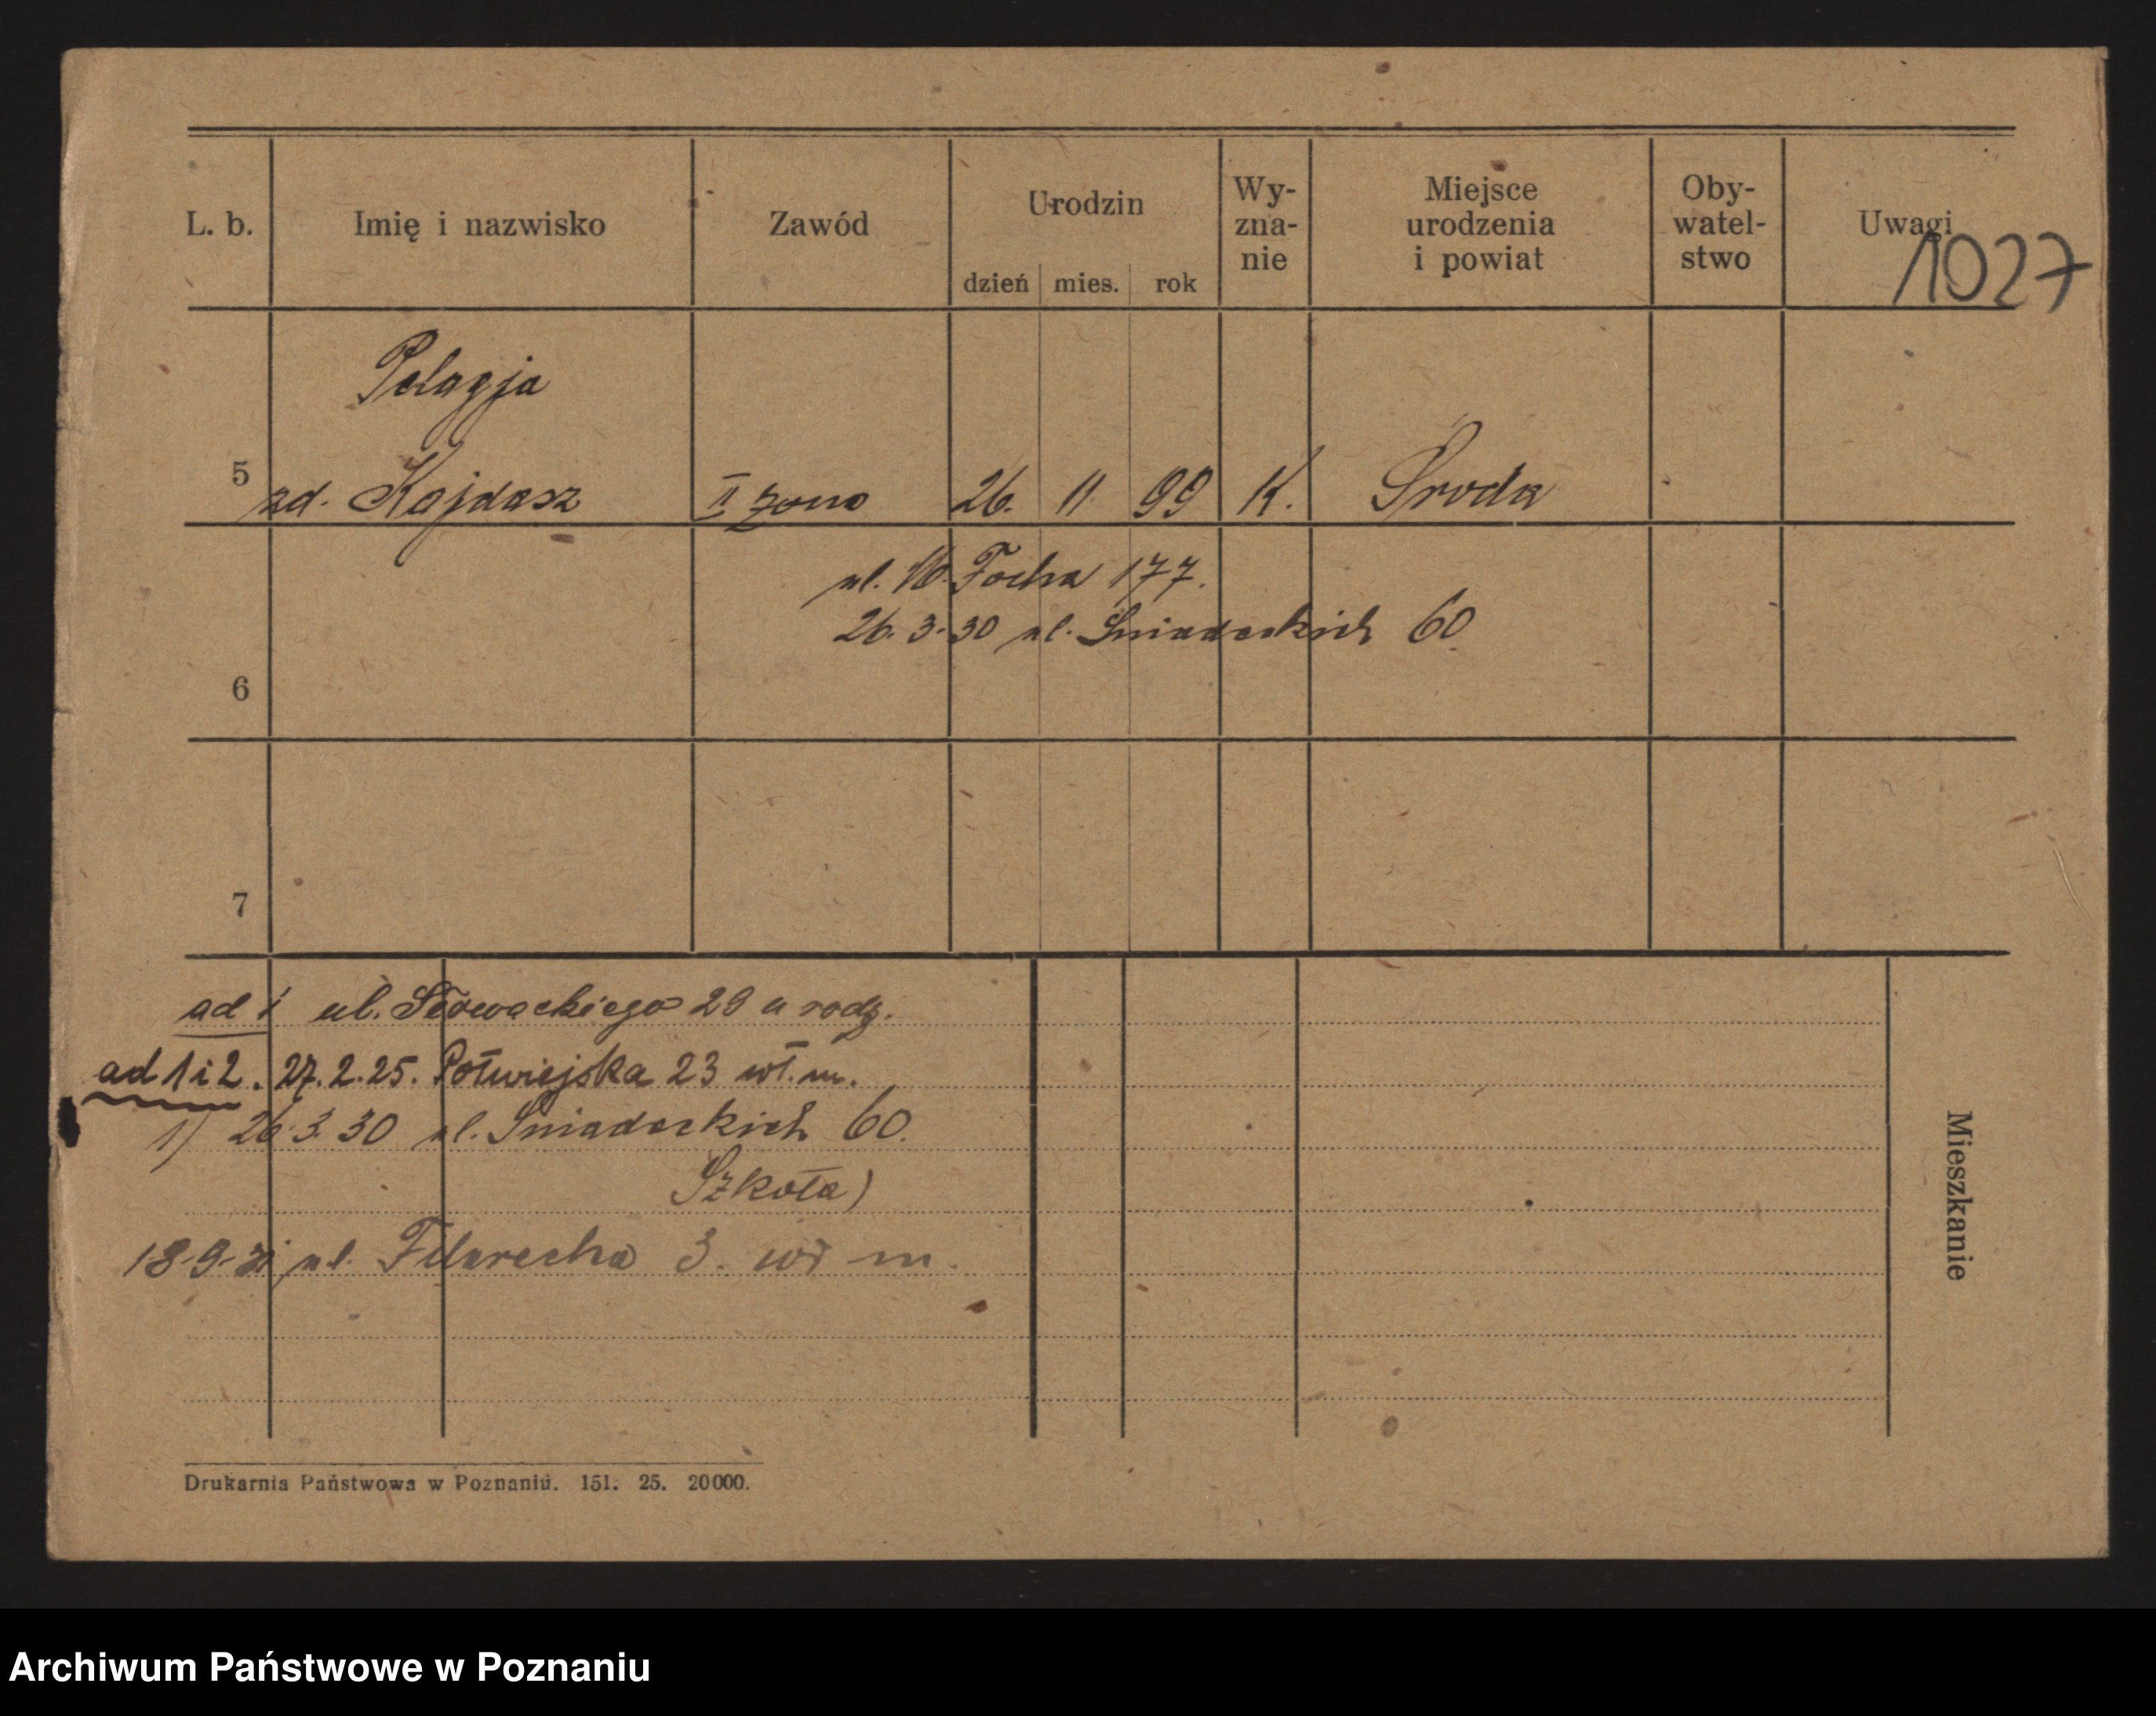 L. b. Imię i nazwisko Zawód Urodzin dzień mies. rok Wy-zna-nie Miejsce urodzenia i powiat Oby-watel-stwo Uwagi
1027
Pelagja
5 zd. Kajdasz II żona 26. 11. 99 K. Środa
ul. M. Focha 177.
26.3.30 ul. Śniadeckich 60.
6
7
ad 1 ul. Słowackiego 29 u rodz.
ad 1 i 2. 27.2.25. Półwiejska 23 wł. m.
1) 26.3.30 ul. Śniadeckich 60.
Szkoła)
18.9.31 ul. Filarecka 3. wł m.
Mieszkanie
Drukarnia Państwowa w Poznaniu. 151. 25. 20000.
Archiwum Państwowe w Poznaniu